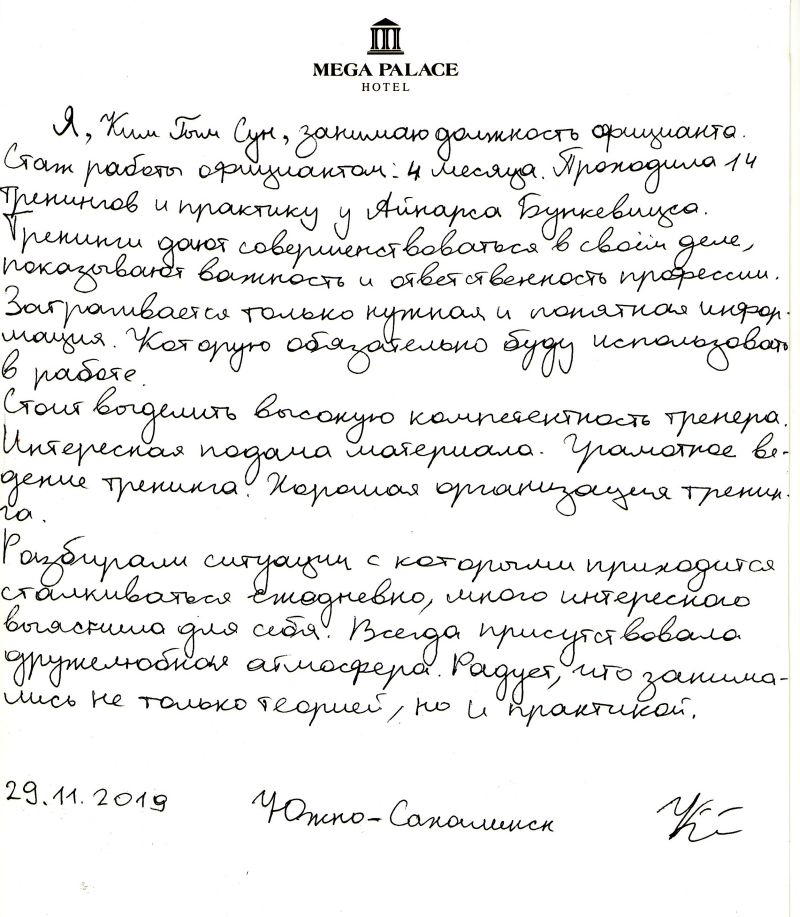 MEGA PALACE
HOTEL
Я, Ким Гым Сун, занимаю должность официанта.
Стаж работы официантом: 4 месяца. Проходила 14
тренингов и практику у Айнарса Бункевицса.
Тренинги дают совершенствоваться в своём деле,
показывают важность и ответственность профессии.
Затрагивается только нужная и понятная инфор-
мация. Которую обязательно буду использовать
в работе.
Стоит выделить высокую компетентность тренера.
Интересная подача материала. Грамотное ве-
дение тренинга. Хорошая организация тренин-
га.
Разбирали ситуации с которыми приходится
сталкиваться ежедневно, много интересного
выяснила для себя. Всегда присутствовала
дружелюбная атмосфера. Радует, что занима-
лись не только теорией, но и практикой.
29.11.2019 Южно-Сахалинск